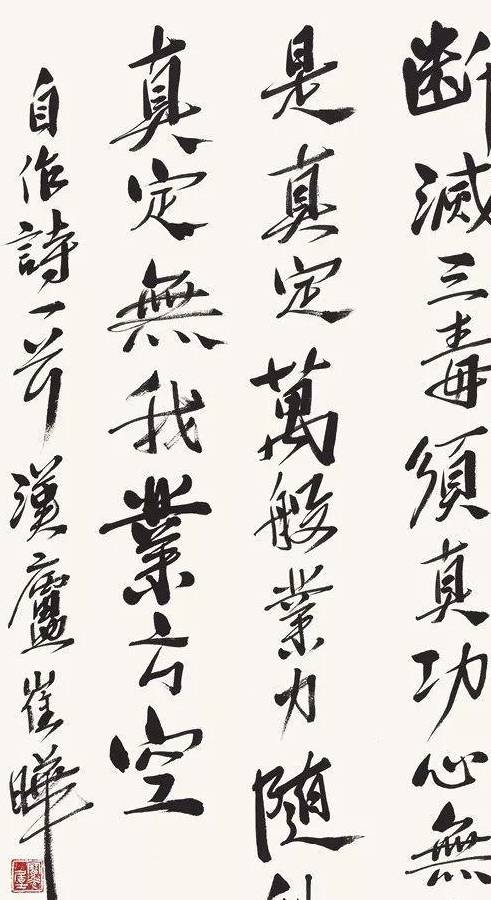 断滅三毒須真功心無
是真定萬般業力隨
真定無我業方空
自作詩一首漢廬崔曄